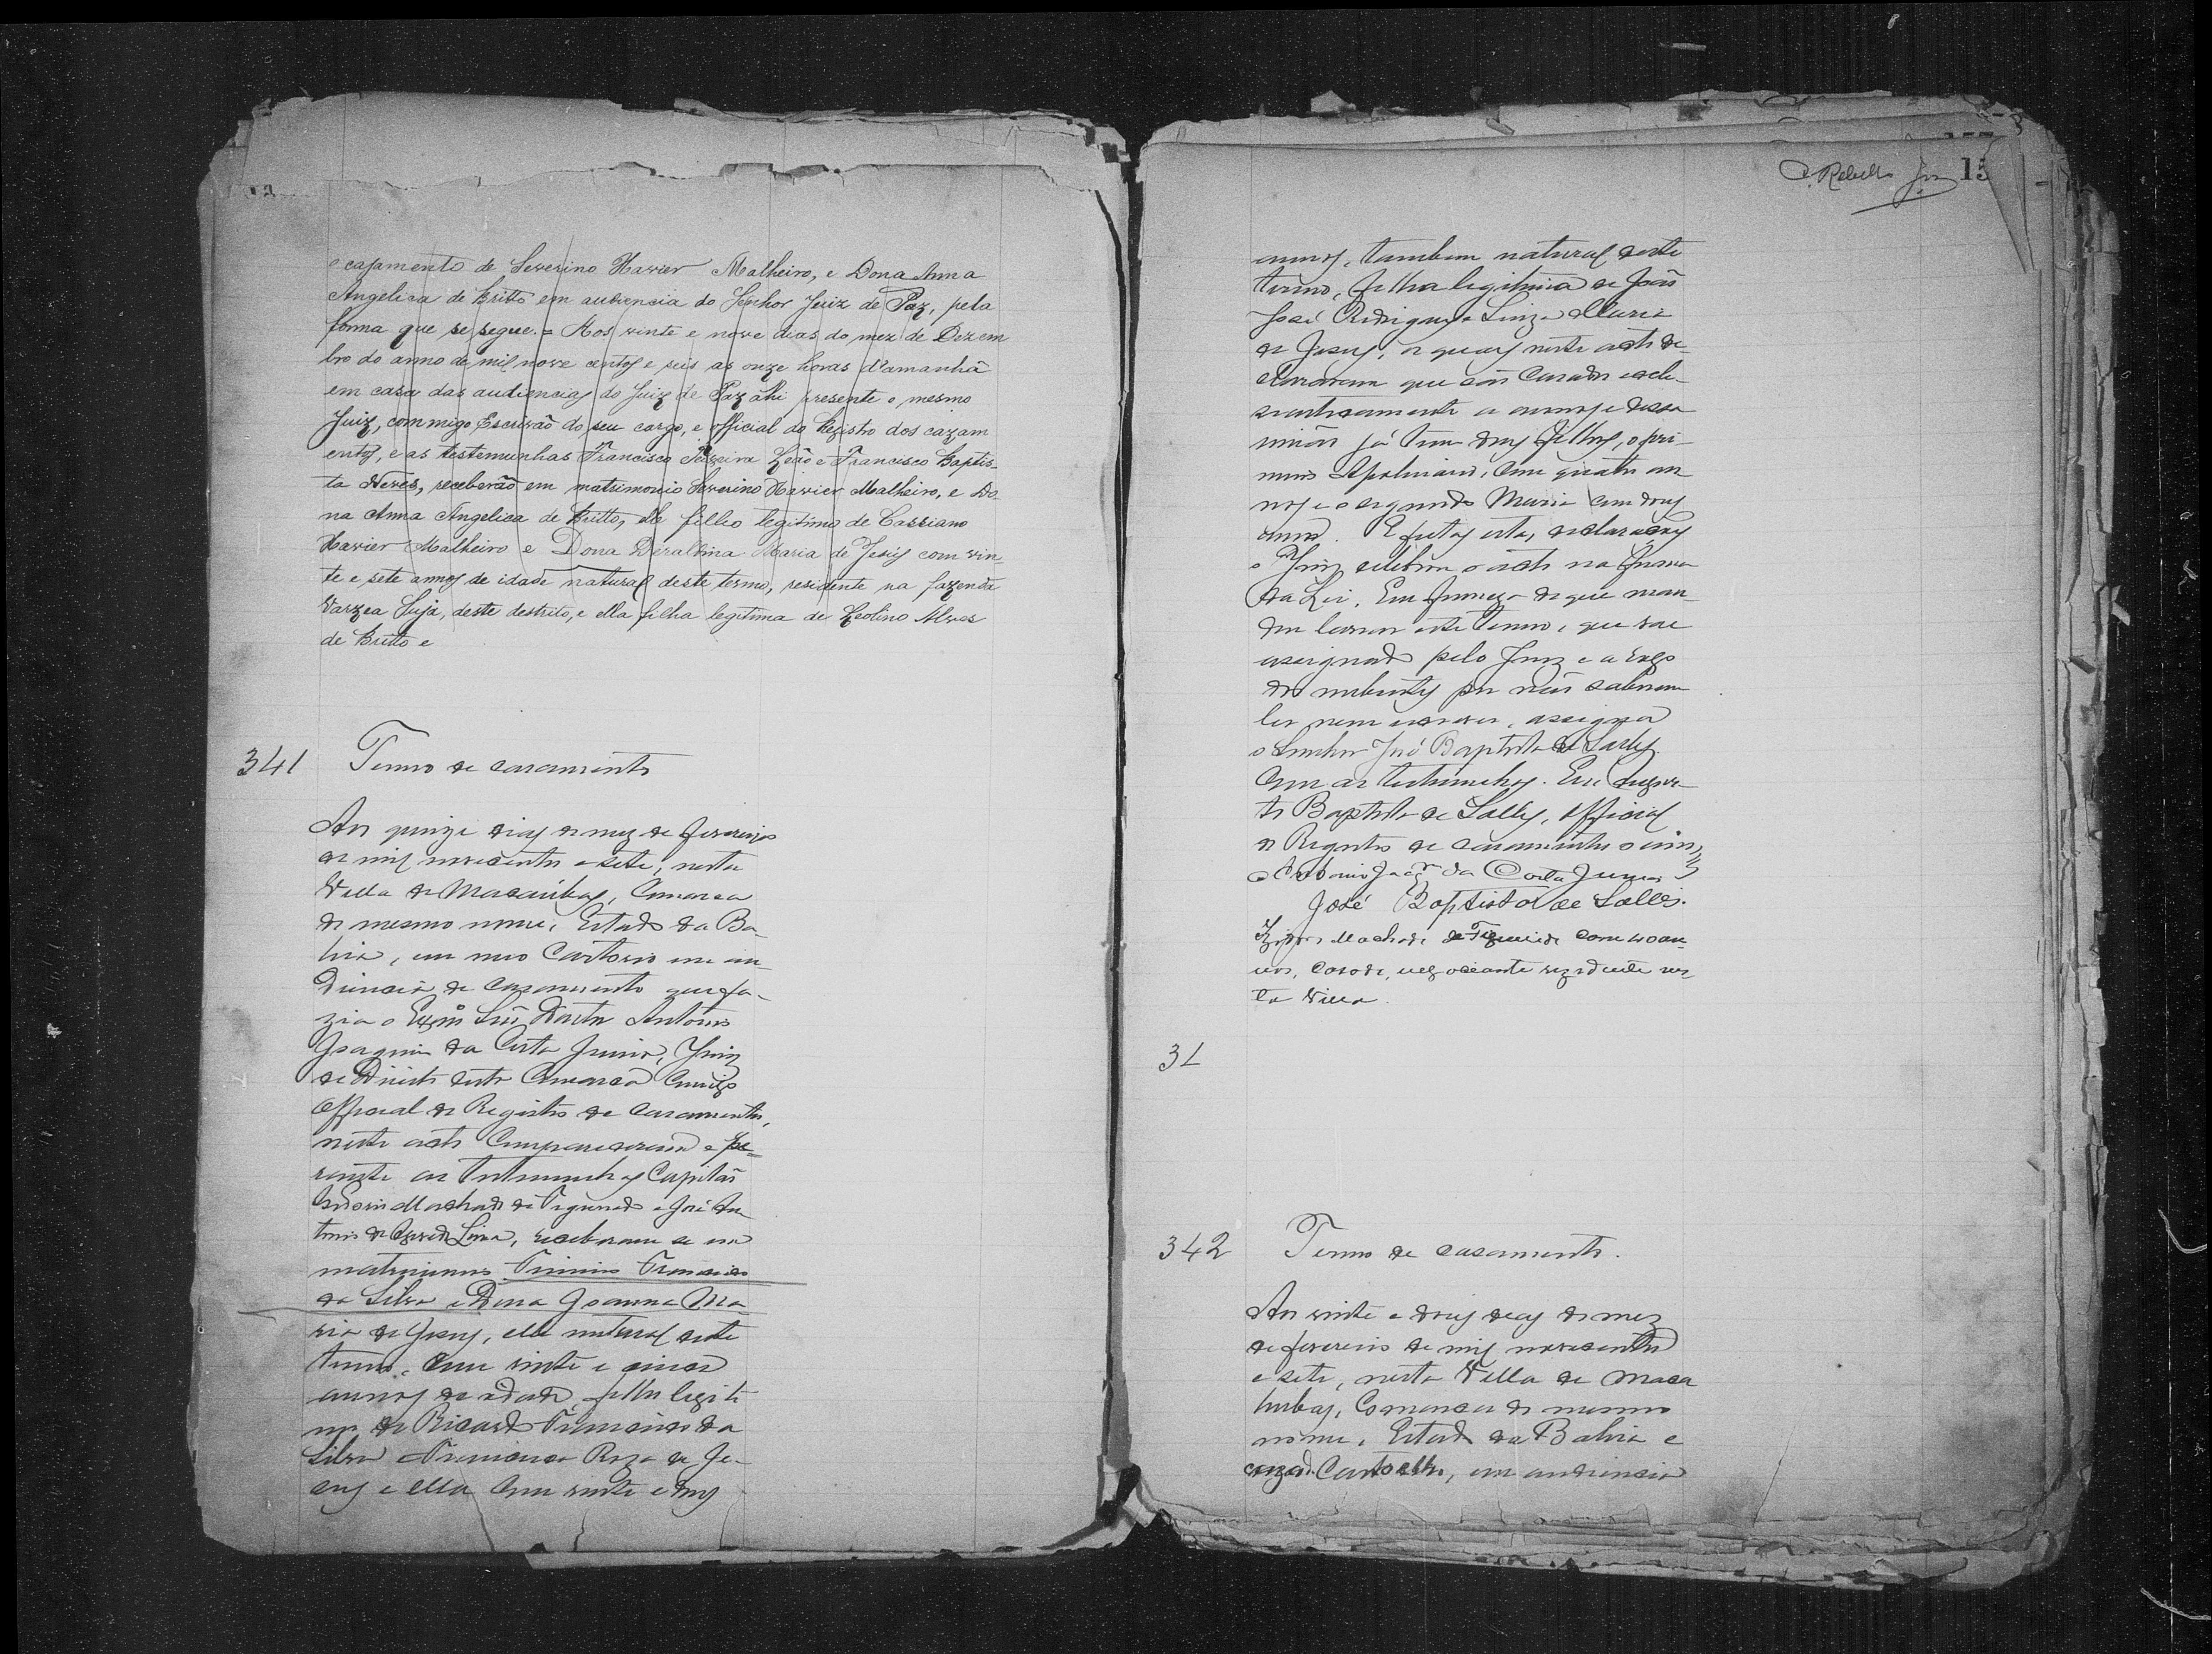 o casamento de Severino Xavier Malheiro, e Dona Anna
Angelica de Britto em audiencia do Senhor Juiz de Paz, pela
forma que se segue. = Aos vinte e nove dias do mez de Dezem
bro do anno de mil nove centos e seis as onze horas d'amanhã
em casa das audiencias do Juiz de Paz ahi presente o mesmo
Juiz, commigo Escrivão do seu cargo, e official do Registro dos cazam
entos, e as testemunhas Francisco Teixeira Leão e Francisco Baptis-
ta Neves, receberão em matrimonio Severino Xavier Malheiro, e Do
na Anna Angelica de Britto, elle filho legitimo de Cassiano
Xavier Malheiro e Dona Deraldina Maria de Jesus com vin
te e sete annos de idade natural deste termo, residente na fazenda
Varzea Suja, deste destrito, e ella filha legitima de Leolino Alves
de Britto e
341 Termo de casamento
Aos quinze dias do mez de fevereiro
de mil novecentos e sete, nesta
Villa de Macaúbas, Comarca
do mesmo nome, Estado da Ba-
hia, em meo Cartorio em au-
diencia de casamento que fa-
zia o Exmº Snr Doutor Antonio
Joaquim da Costa Junior, Juiz
de Direito desta Comarca Comigo
Official do Registro de Casamentos,
neste acto compareceram e pe-
rante as testemunhas Capitão
Machado de Figueredo e José An
tonio de Lima, receberam se em
matrimonio Firmino Francisco
da Silva e Dona Joanna Ma-
ria de Jesus, elle natural deste
termo, com vinte e cinco
annos de idade, filho legiti
mo de Ricardo Francisco da
Silva e Francisca Roza de Je-
sus e ella com vinte e dous
P. Rebello Jor 15
annos, tambem natural deste
termo, filha legitima de João
José Rodrigues e Maria
de Jesus, os quaes neste acto de-
clararam que são Casados eccle-
siasticamente a annos e dessa
união já tem dous filhos, o pri-
meiro Apolinario, com quatro an
nos e o segundo Maria com dous
annos. E feitas estas declarações
o Juiz celebrou o acto na forma
da Lei. Em firmeza do que man-
dou lavrar este Termo, que vae
assignado pelo Juiz e a rogo
dos nubentes por não saberem
ler nem escrever, assigna
o Senhor José Baptista de Salles
com as testemunhas. Eu
Baptista de Salles, official
do Registro de casamentos o escrevi
Antonio Joaqm da Costa Junior
José Baptista de Salles.
Machado de Figueiredo com 40 an-
nos, casado, negociante rezidente nes
ta Villa.
31
342 Termo de casamento.
Aos vinte e dous dias do mez
de fevereiro de mil novecentos
e sete, nesta Villa de Maca
hubas, Comarca do mesmo
nome, Estado da Bahia e
em audiencia